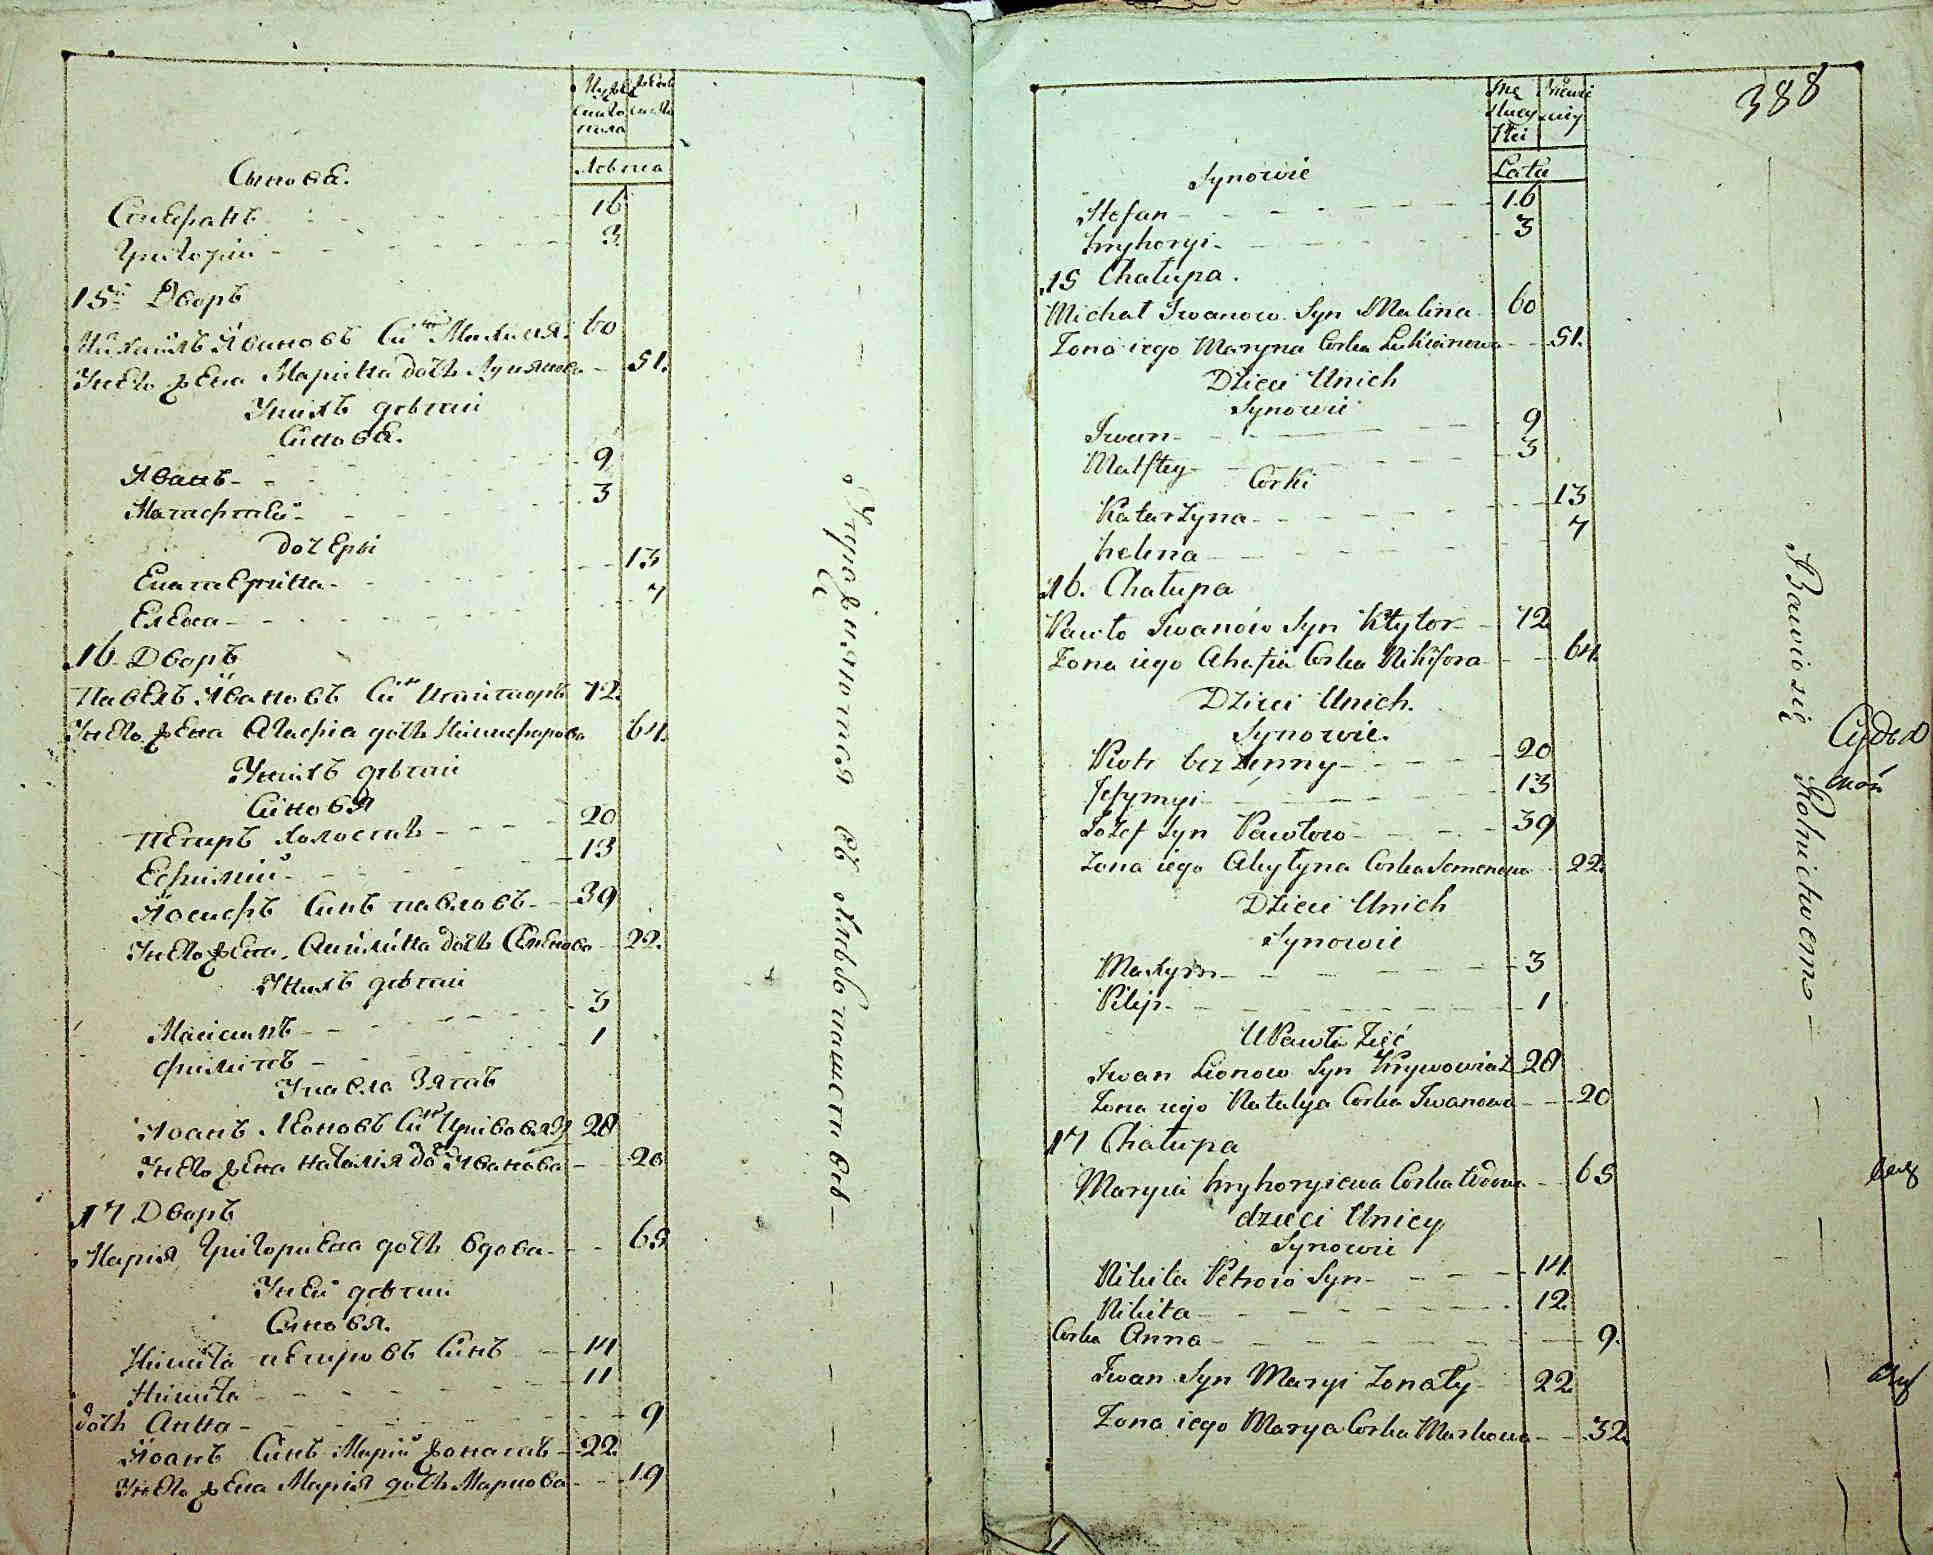 Сынова.
Стефанъ 16
Григорій 3
15й Дворъ
Михайлъ Ивановъ Сынъ Малина. 60
Унего жена Марина дочь Лукянова 51.
Унихъ дѣтей
Синова.
Иванъ 9
Матфтей 3
дочери
Екатерина 13
Елена 7
16 Дворъ
Павелъ Ивановъ Синъ Ктиторъ 72.
Унего жена Агафіа дочь Никифорова 64.
Унихъ дѣтей
Синовя
Петръ холостъ 20
Ефимій 13
Иосифъ Синъ павловъ 39
Унего жена Акилина дочь Семенова 22.
Унихъ дѣтей
Максимъ 3
филипъ 1
Упавла Зять
Иоанъ Леоновъ Синъ 28
Унего жена Наталія дочь Иванова 20
17 Дворъ
Марія Григориева дочь вдова 65
Уней дѣтей
Синовя.
Никита петровъ Синъ 14
Никита 11
дочь Анна 9
Иоанъ Синъ Маріи жонатъ 22.
Унего жена Марія дочь Маркова 19
Упражняются въ хлѣбопашествѣ
388
Mę Niewie
skiey
Płci
Lata
Synowie
Stefan 16
hryhoryi 3
15 Chałupa.
Michał Iwanow Syn Malina 60
Zona iego Maryna Corka Lukianowa 51.
Dzieci Unich
Synowie
Iwan 9
Matftey 3
Corki
Katarzyna 13
helena 7
16. Chałupa
Pawło Iwanów Syn Ktytor 72
Zona iego Ahafia Corka Nikifora 64
Dzieci Unich.
Synowie.
Piotr bezżenny 20
Jefymyi 13
Jozef Syn Pawłow 39
Zona iego Akylyna Corka Semenowa 22.
Dzieci Unich
Synowie
Maxym 3
Pilip 1
UPawła Zięć
Iwan Leonow Syn Krywowiaz 28
Zona iego Natalya Corka Iwanowa 20
17 Chałupa
Marya hryhoryiewa Corka Wdowa 65
dzieci Unicy
Synowie
Nikita Petrow Syn 14
Nikita 12
Corka Anna 9.
Iwan Syn Maryi Zonaty 22
Zona iego Marya Corka Markowa 32.
Bawio się Rolnictwem